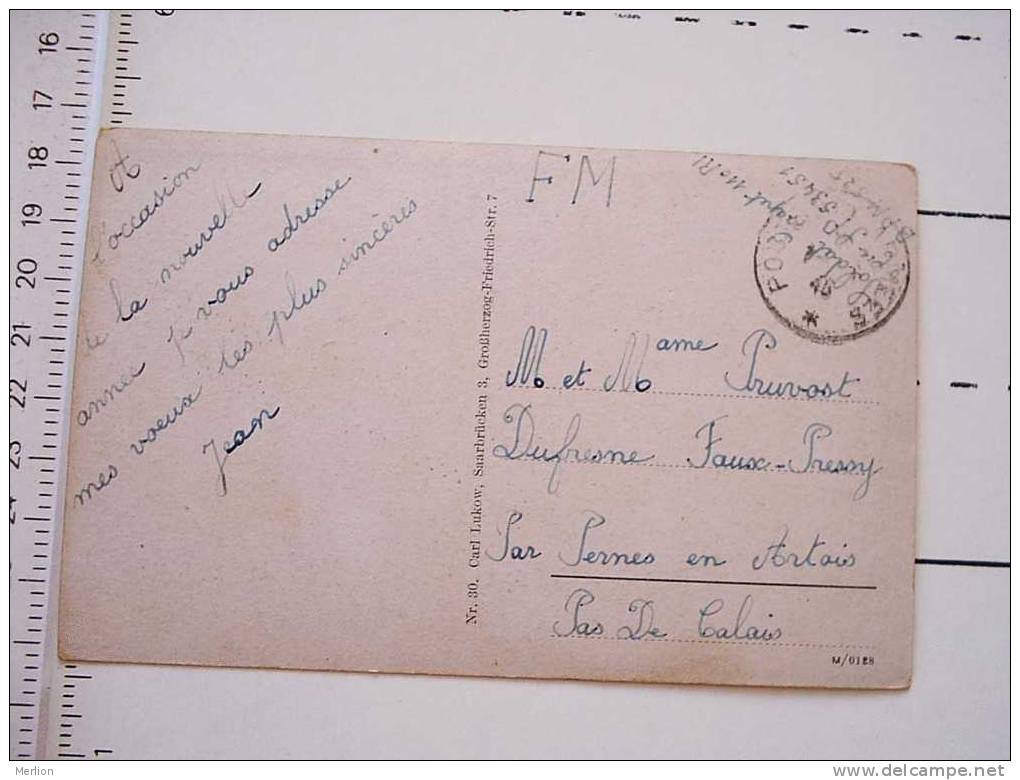 A
l'occasion
de la nouvelle
année je vous adresse
mes voeux les plus sincères
Jean
Nr. 30. Carl Lukow, Saarbrücken 3, Großherzog-Friedrich-Str. 7
FM
Soldat
53451
POSTE
M et Mame Pruvost
Dufresne Faux-Pressy
Par Pernes en Artois
Pas De Calais
M/0188
16
17
18
19
20
21
22
23
24
1
Merlion
delcampe.net